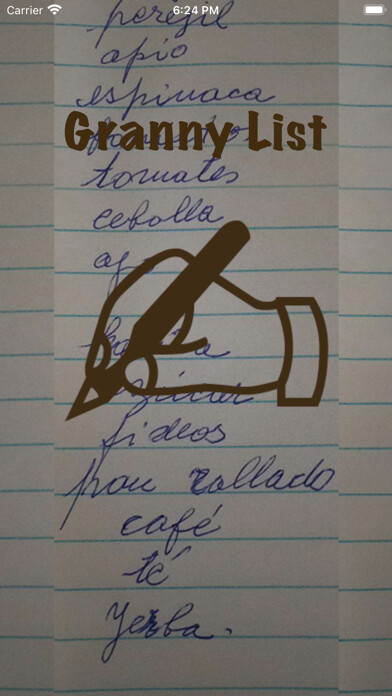 Carrier 6:24 PM
perejil
apio
espinaca
Granny List
tomates
cebolla
fideos
pan rallado
café
té
Yerba.